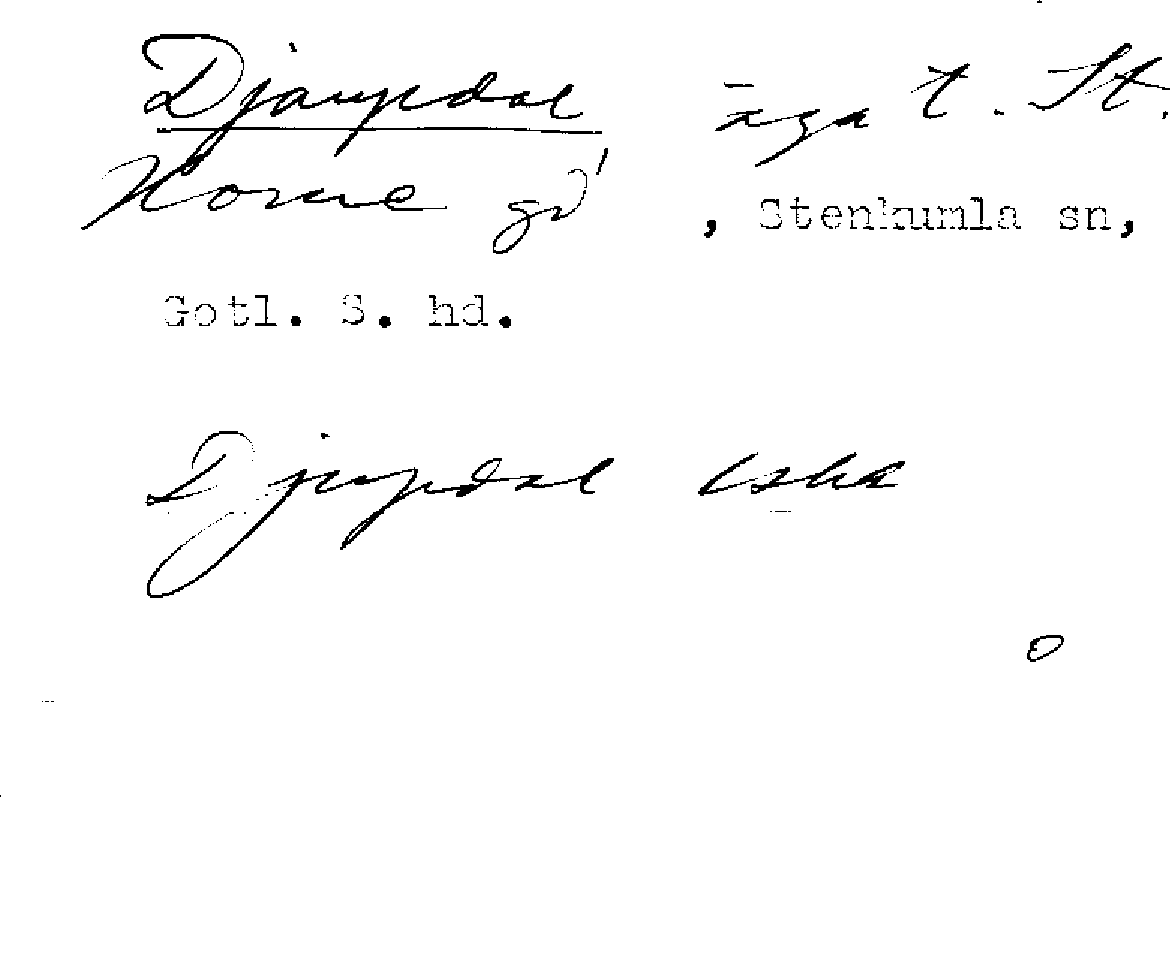 Djaupdal äga t. St.
Norrve gd , Stenkumla sn,
Gotl. S. hd.
Djupdal eska